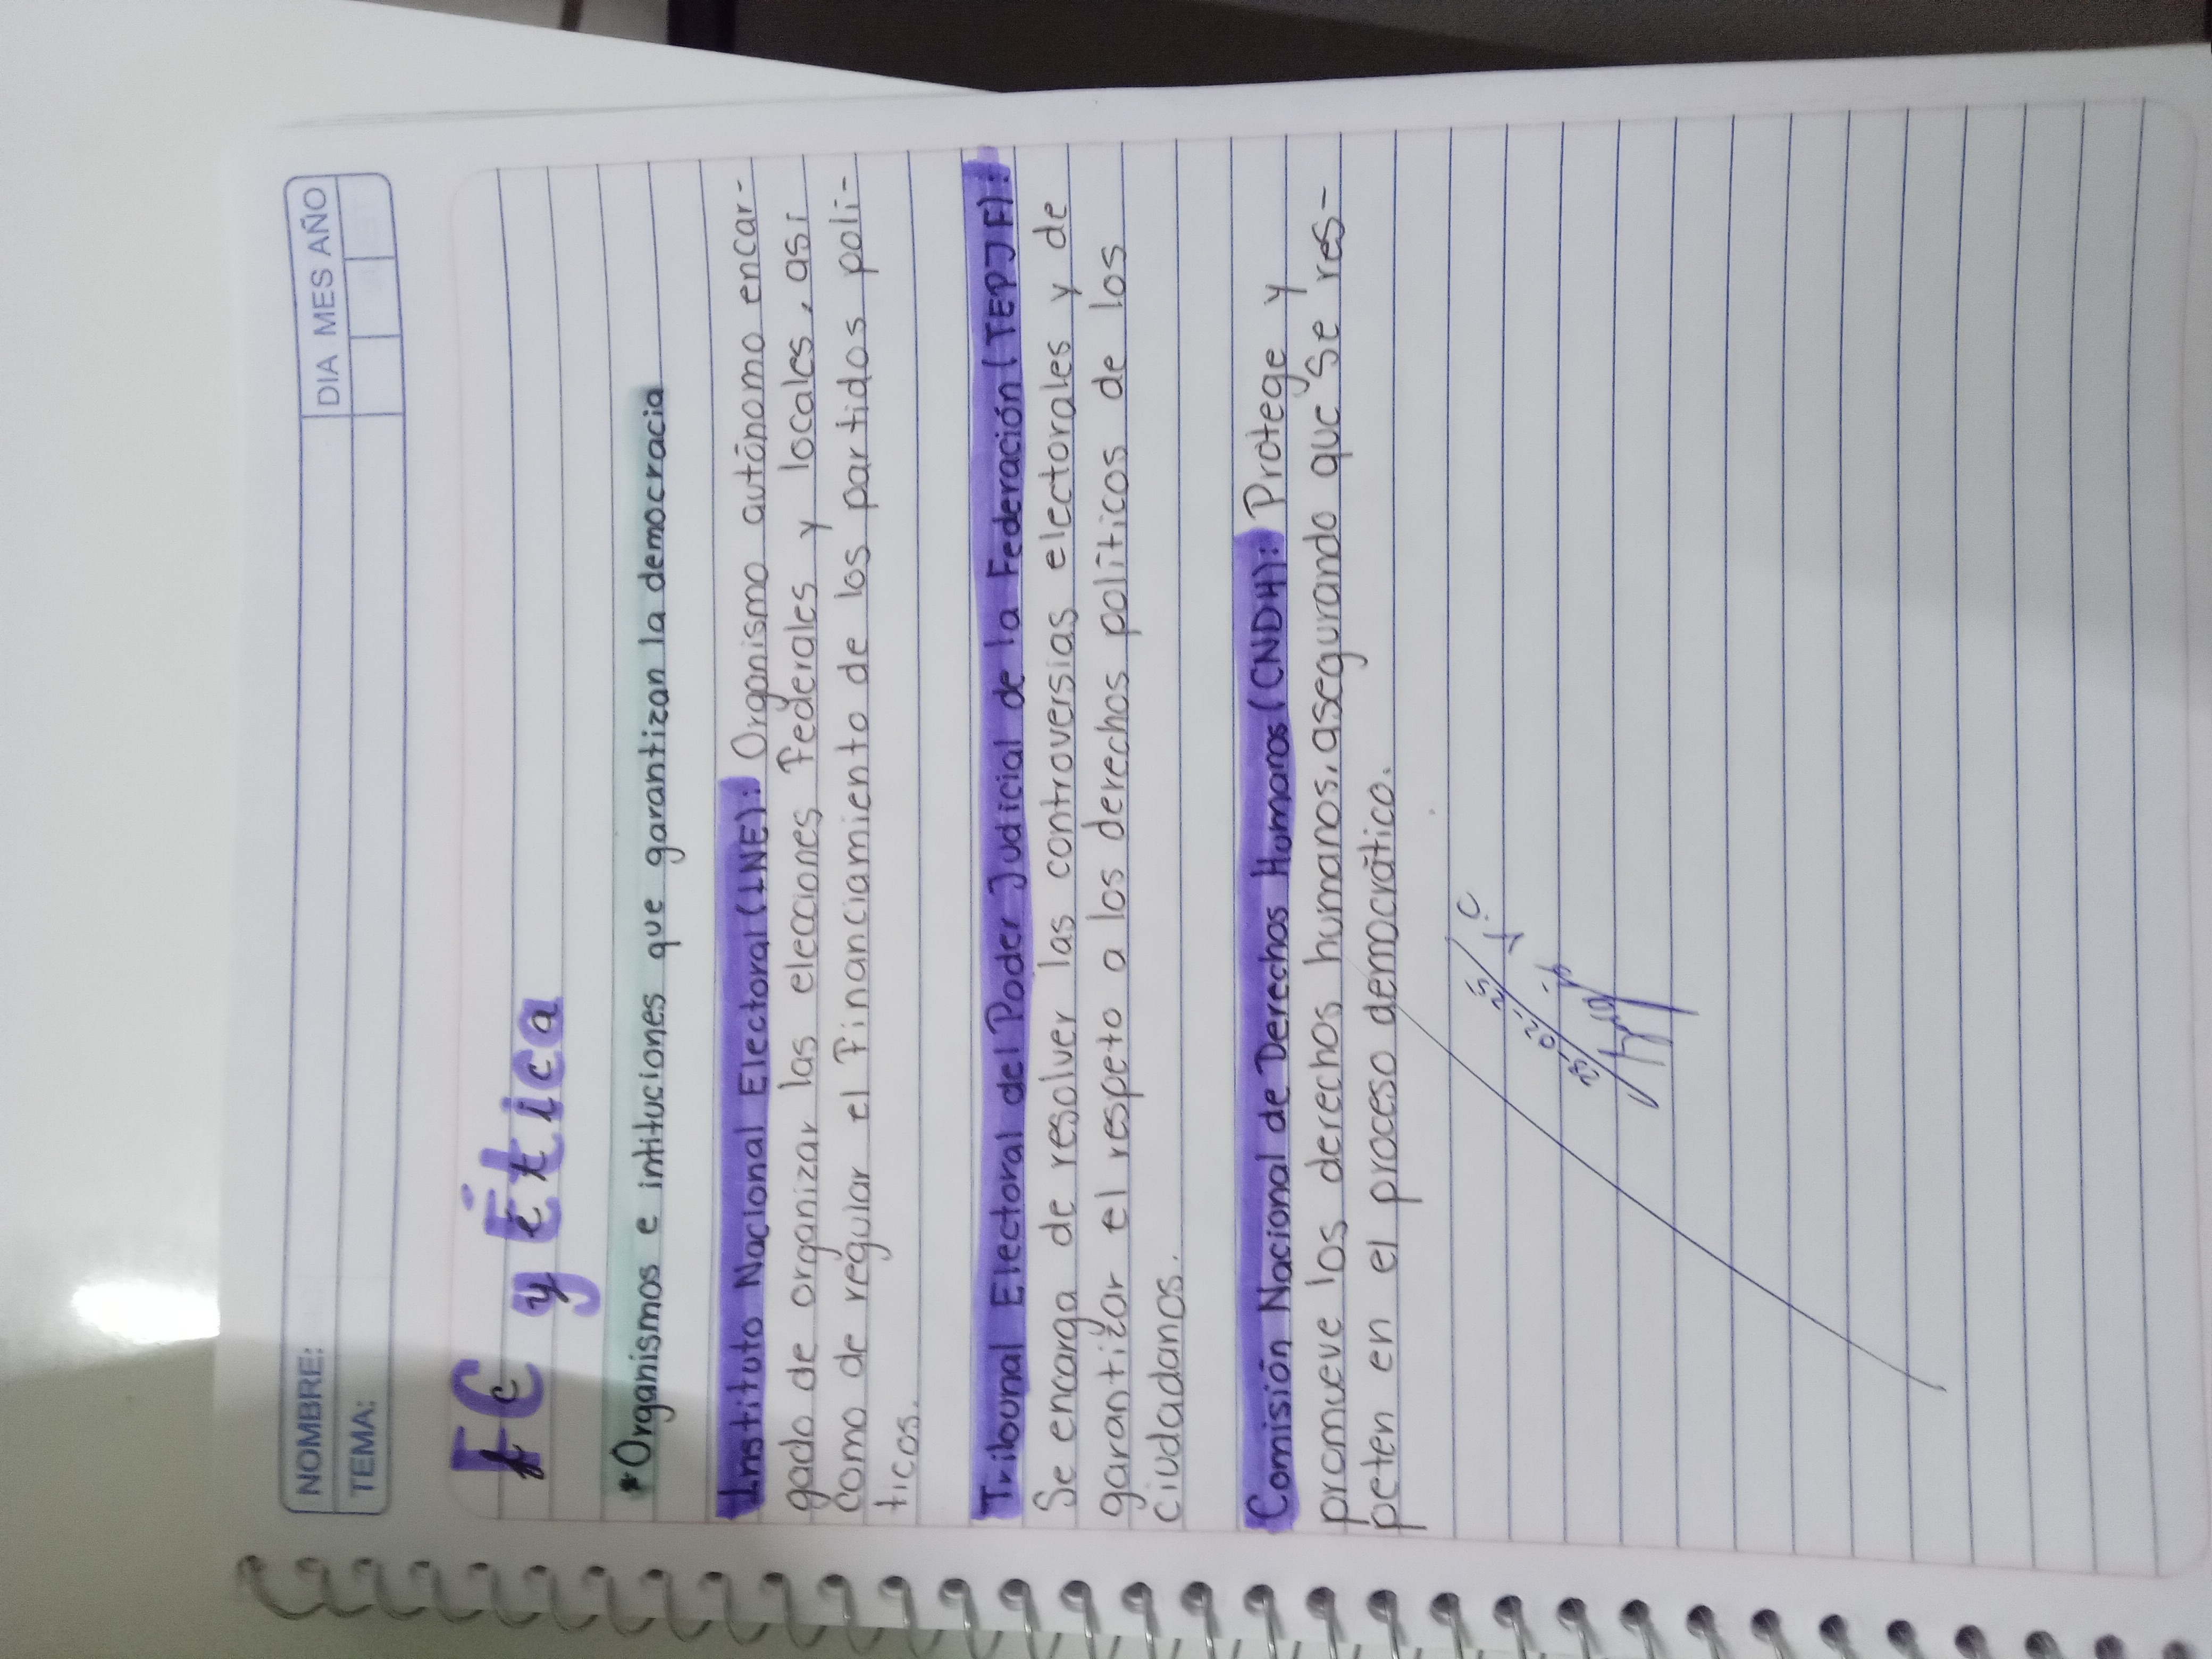 DIA MES AÑO
NOMBRE:
TEMA:
FC y Ética
*Organismos e intituciones que garantizan la democracia
Instituto Nacional Electoral (INE): Organismo autónomo encar-
gado de organizar las elecciones Federales y locales, asi
como de regular el Financiamiento de los partidos polí-
ticos.
Tribunal Electoral del Poder Judicial de la Federación (TEPJF):
Se encarga de resolver las controversias electorales y de
garantizar el respeto a los derechos políticos de los
ciudadanos.
Comisión Nacional de Derechos Humanos (CNDH): Protege y
promueve los derechos humanos, asegurando que se res-
peten en el proceso democrático.